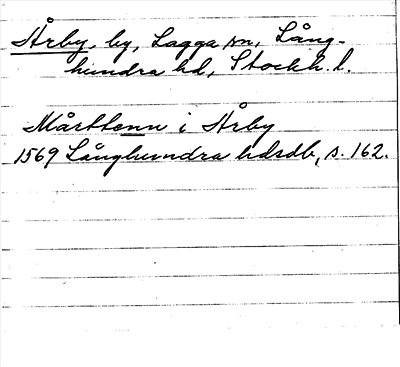 Årby, by, Lagga sn, Lång-
hundra hd, Stockh. l.
Mårttenn i Årby
1569 Långhundra hdsdb, s. 162.